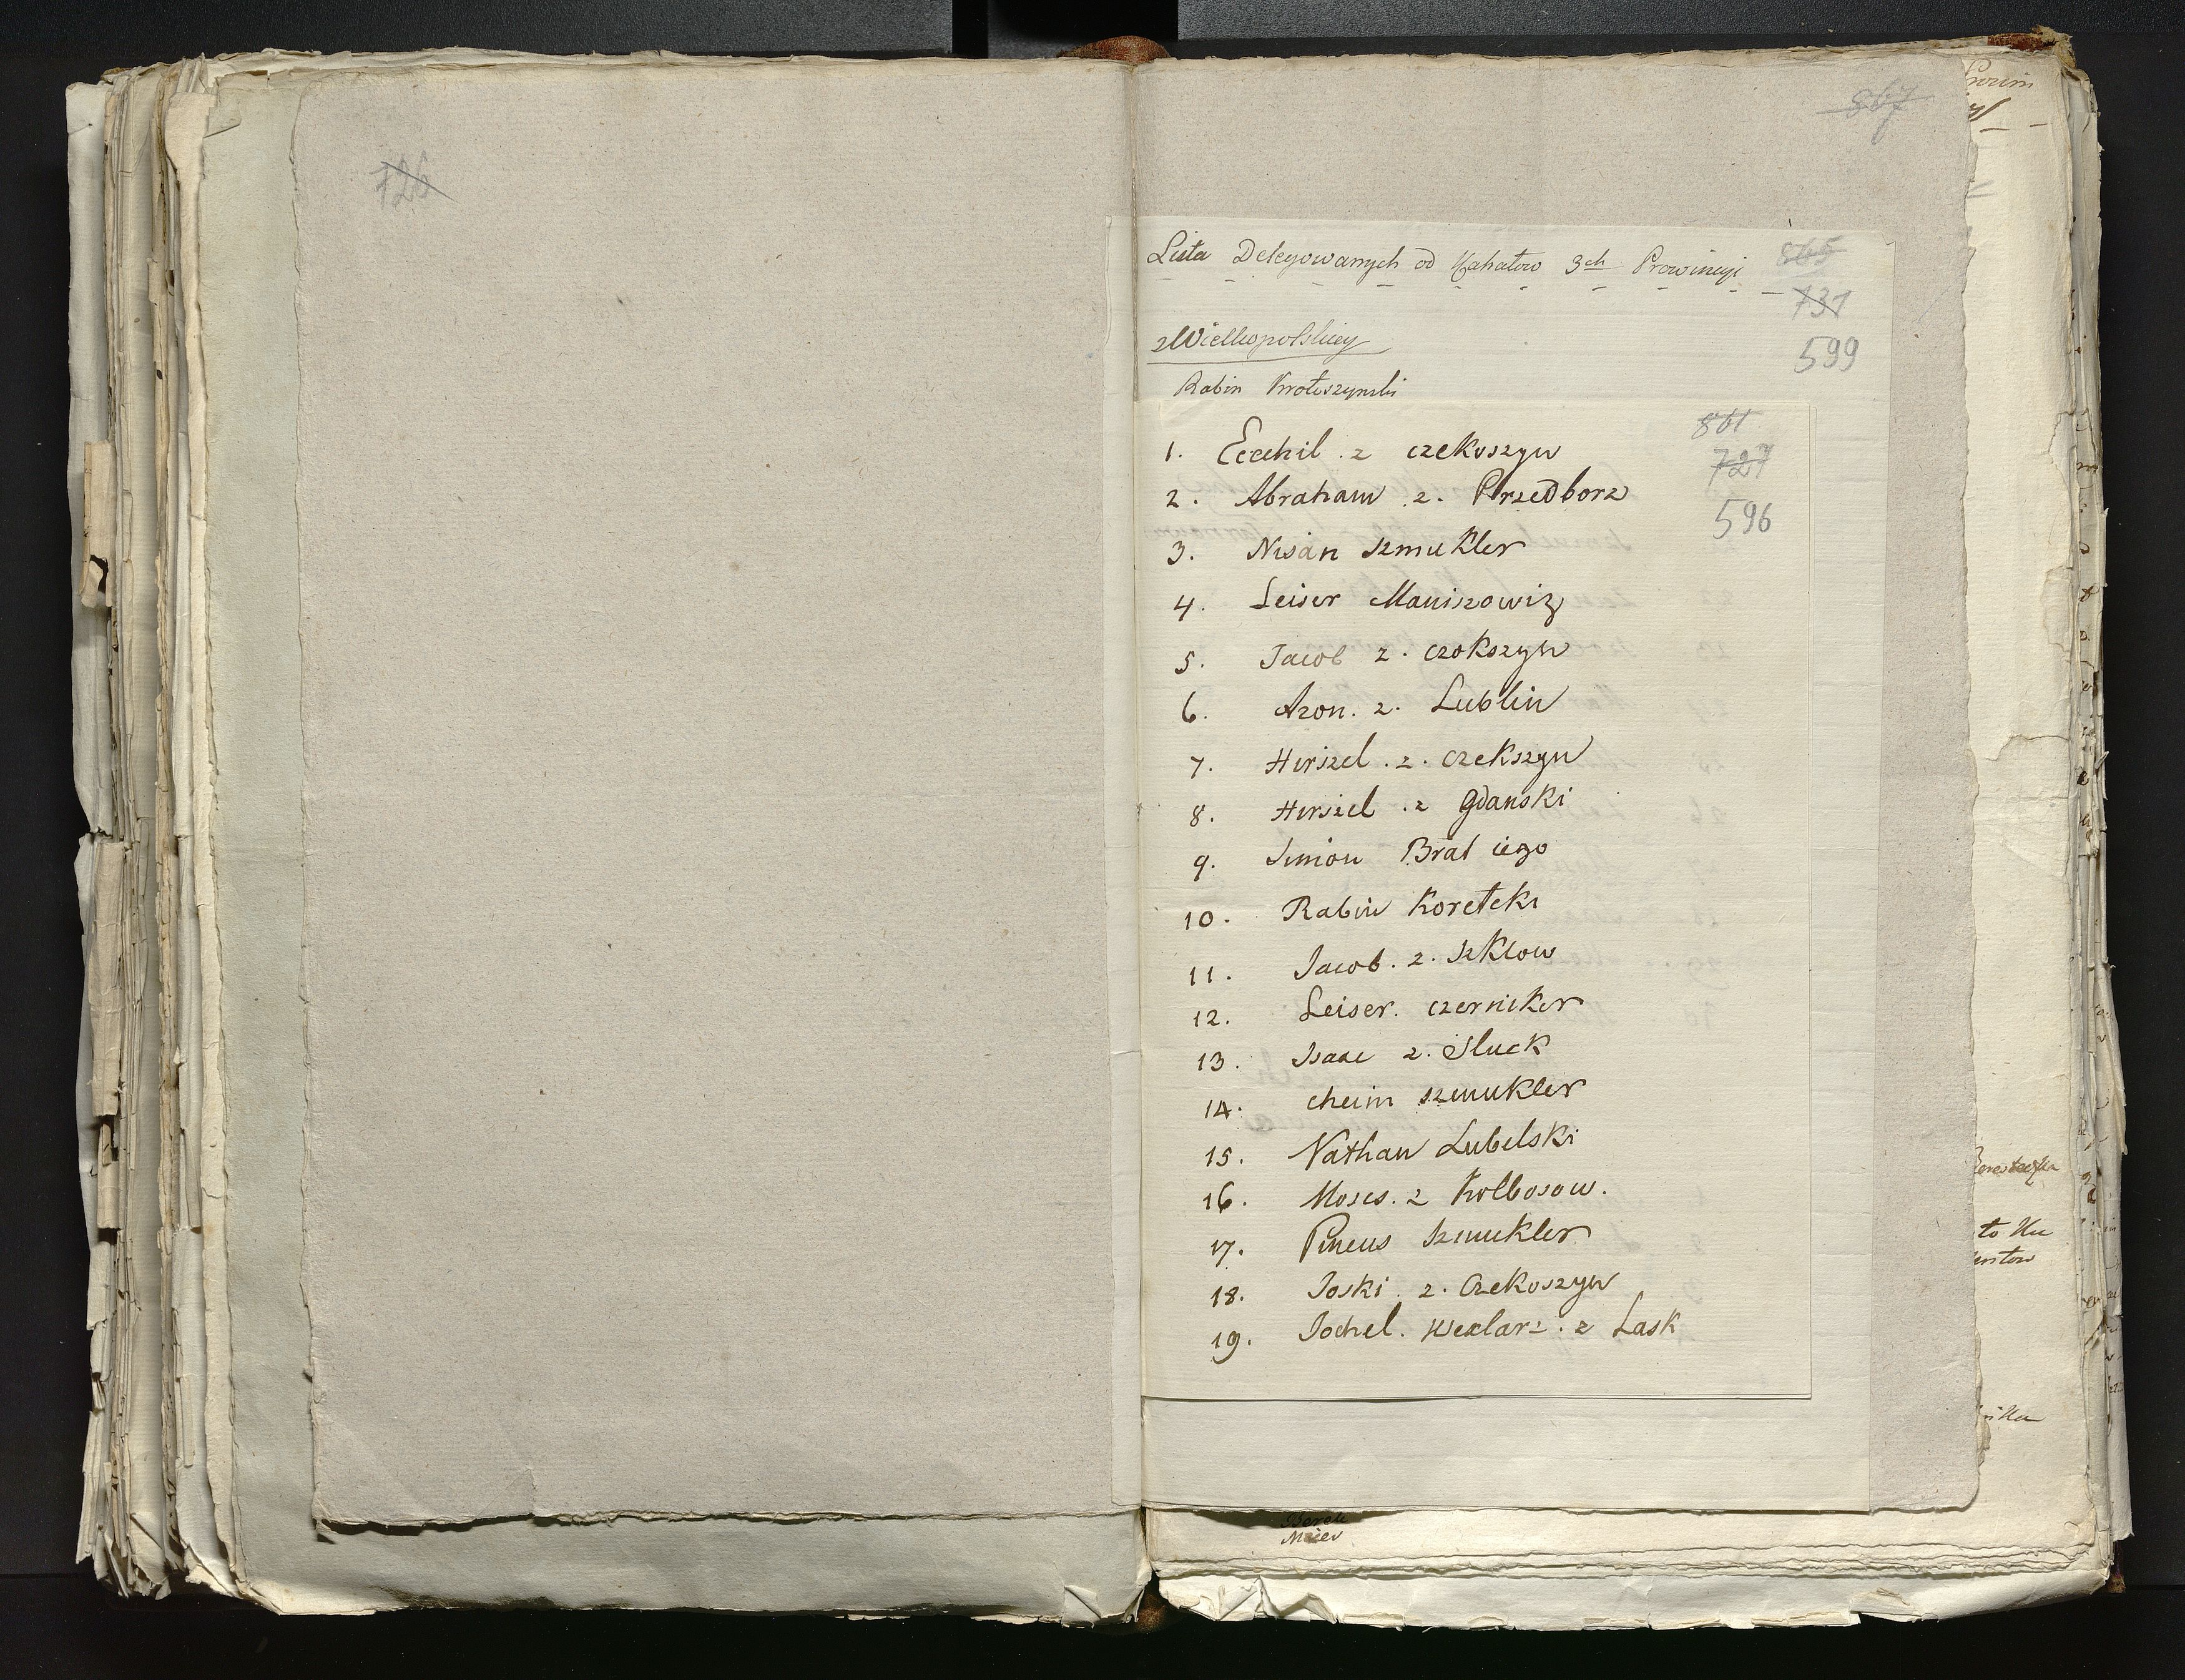 126
867
Lista Delegowanych od Kahałow 3ch Prowincyi
865
731
599
z Wielkopolskiey
Rabin Krotoszynski
861
727
596
1. Ecechil . z czekoszyn
2. Abraham . z . Przedborz
3. Nisan szmukler
4. Leiser Maniszowiz
5. Jacob z . czokszyn
6. Aron . z . Lublin
7. Herszel . z . czekszyn
8. Herszel . z Gdanski
9. Simon Brat iego
10. Rabin Koretcki
11. Jacob . z . szklow
12. Leiser . czerniker
13. Isaac z . Sluck
14. cheim szmukler
15. Nathan Lubelski
16. Moses . z Kolbosow .
17. Pineus szmukler
18. Joski . z . Czekoszyn
19. Jochel . wexlarz . z Lask
Berek
Meier